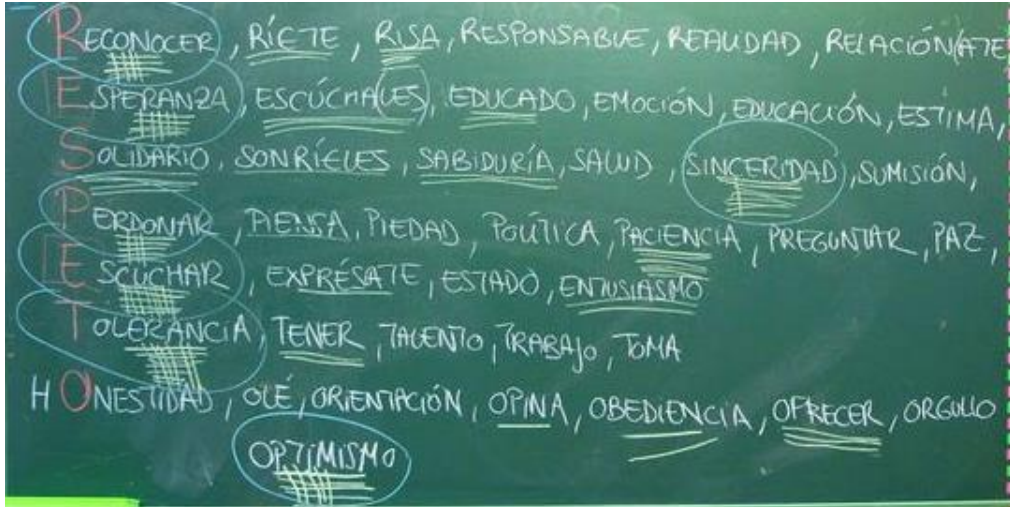 RECONOCER, RÍETE, RISA, RESPONSABLE, REALIDAD, RELACIÓN(ATE
ESPERANZA, ESCÚCHA(LES), EDUCADO, EMOCIÓN, EDUCACIÓN, ESTIMA,
SOLIDARIO, SONRÍELES, SABIDURÍA, SALUD, SINCERIDAD, SUMISIÓN,
PERDONAR, PIENSA, PIEDAD, POLÍTICA, PACIENCIA, PREGUNTAR, PAZ,
ESCUCHAR, EXPRÉSATE, ESTADO, ENTUSIASMO
TOLERANCIA, TENER, TALENTO, TRABAJO, TOMA
HONESTIDAD, OLÉ, ORIENTACIÓN, OPINA, OBEDIENCIA, OFRECER, ORGULLO
OPTIMISMO